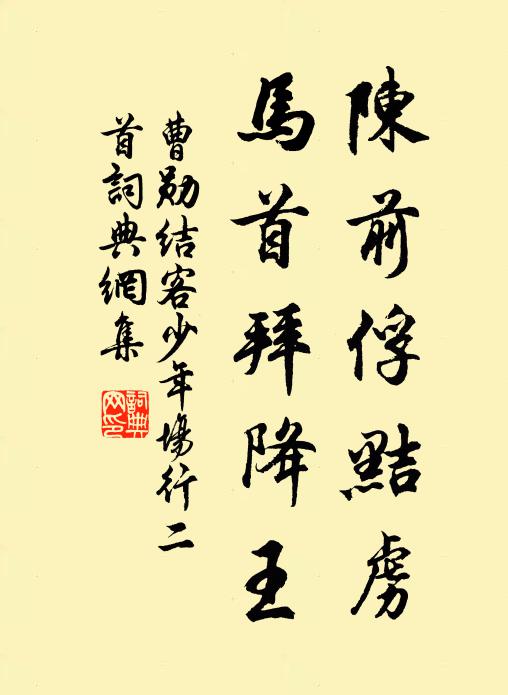 陳前俘黠虜
馬首拜降王
曹勛結客少年場行二
首詞典網集
詞典網印